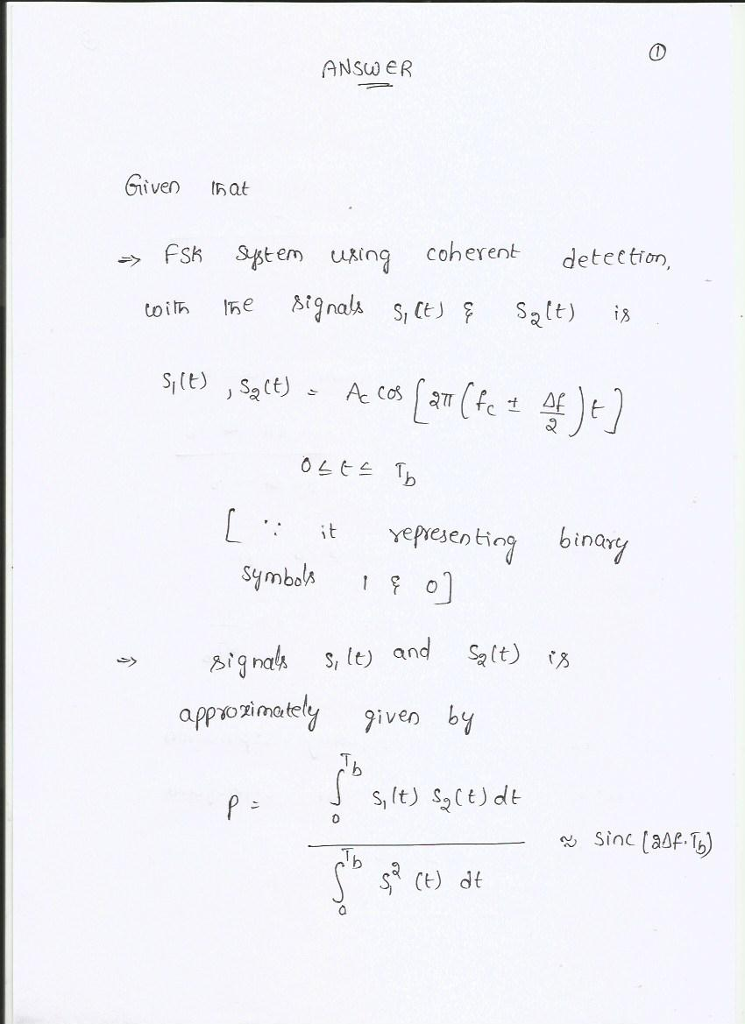 ①
ANSWER
Given that
⇒ FSK system using coherent detection,
with the signals s₁(t) & s₂(t) is
s₁(t), s₂(t) = Ac cos [2π(fc ± Δf/2)t]
0 ≤ t ≤ Tb
[∵ it representing binary
symbols 1 & 0]
⇒ signals s₁(t) and s₂(t) is
approximately given by
ρ = ∫₀^Tb s₁(t) s₂(t) dt / ∫₀^Tb s₁²(t) dt ≈ sinc (2Δf·Tb)